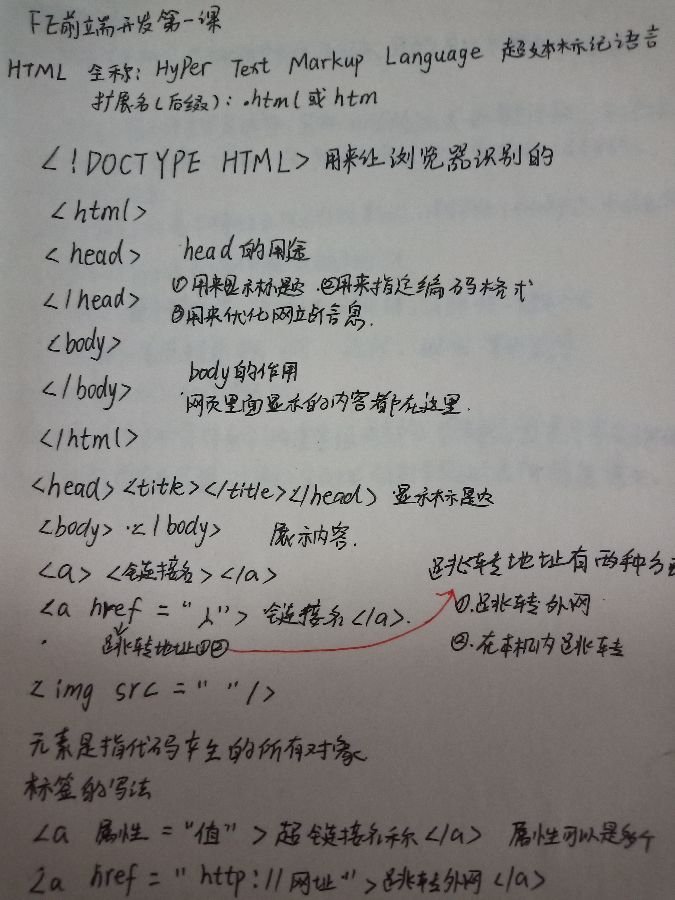 FE前端开发第一课
HTML 全称: HyPer Text Markup Language 超文本标记语言
扩展名(后缀): .html或htm
<!DOCTYPE HTML> 用来让浏览器识别的
<html>
<head> head的用途
①用来显示标题 ②用来指定编码格式
</head>
③用来优化网站信息.
<body>
body的作用
</body>
网页里面显示的内容都在这里.
</html>
<head><title></title></head> 显示标题
<body>.</body> 展示内容.
<a> <链接名></a>
跳转地址有两种
<a href = " "> 链接名</a>.
①.跳转外网
跳转地址①②
②.在本机内跳转
<img src = " "/>
元素是指代码产生的所有对象
标签的写法
<a 属性 = "值" > 超链接名称</a> 属性可以是多个
<a href = " http:// 网址 " >跳转外网</a>